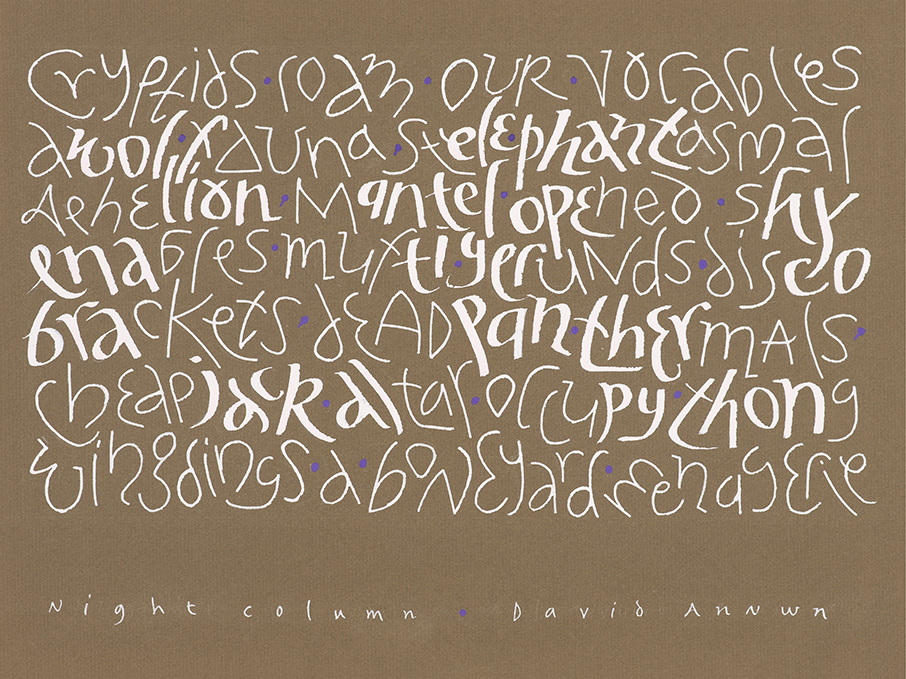 Cryptids · roam · our · vocables
awol · fauna, stele · phantasmal
Aphelion, Mantel · opened · shy
enables · mufti · gerunds · disco
brackets, deADpan · thermAls,
cheapjack · altar · occupy · thong
wingdings · a · boNeyard · menagerie
Night column · David Annwn